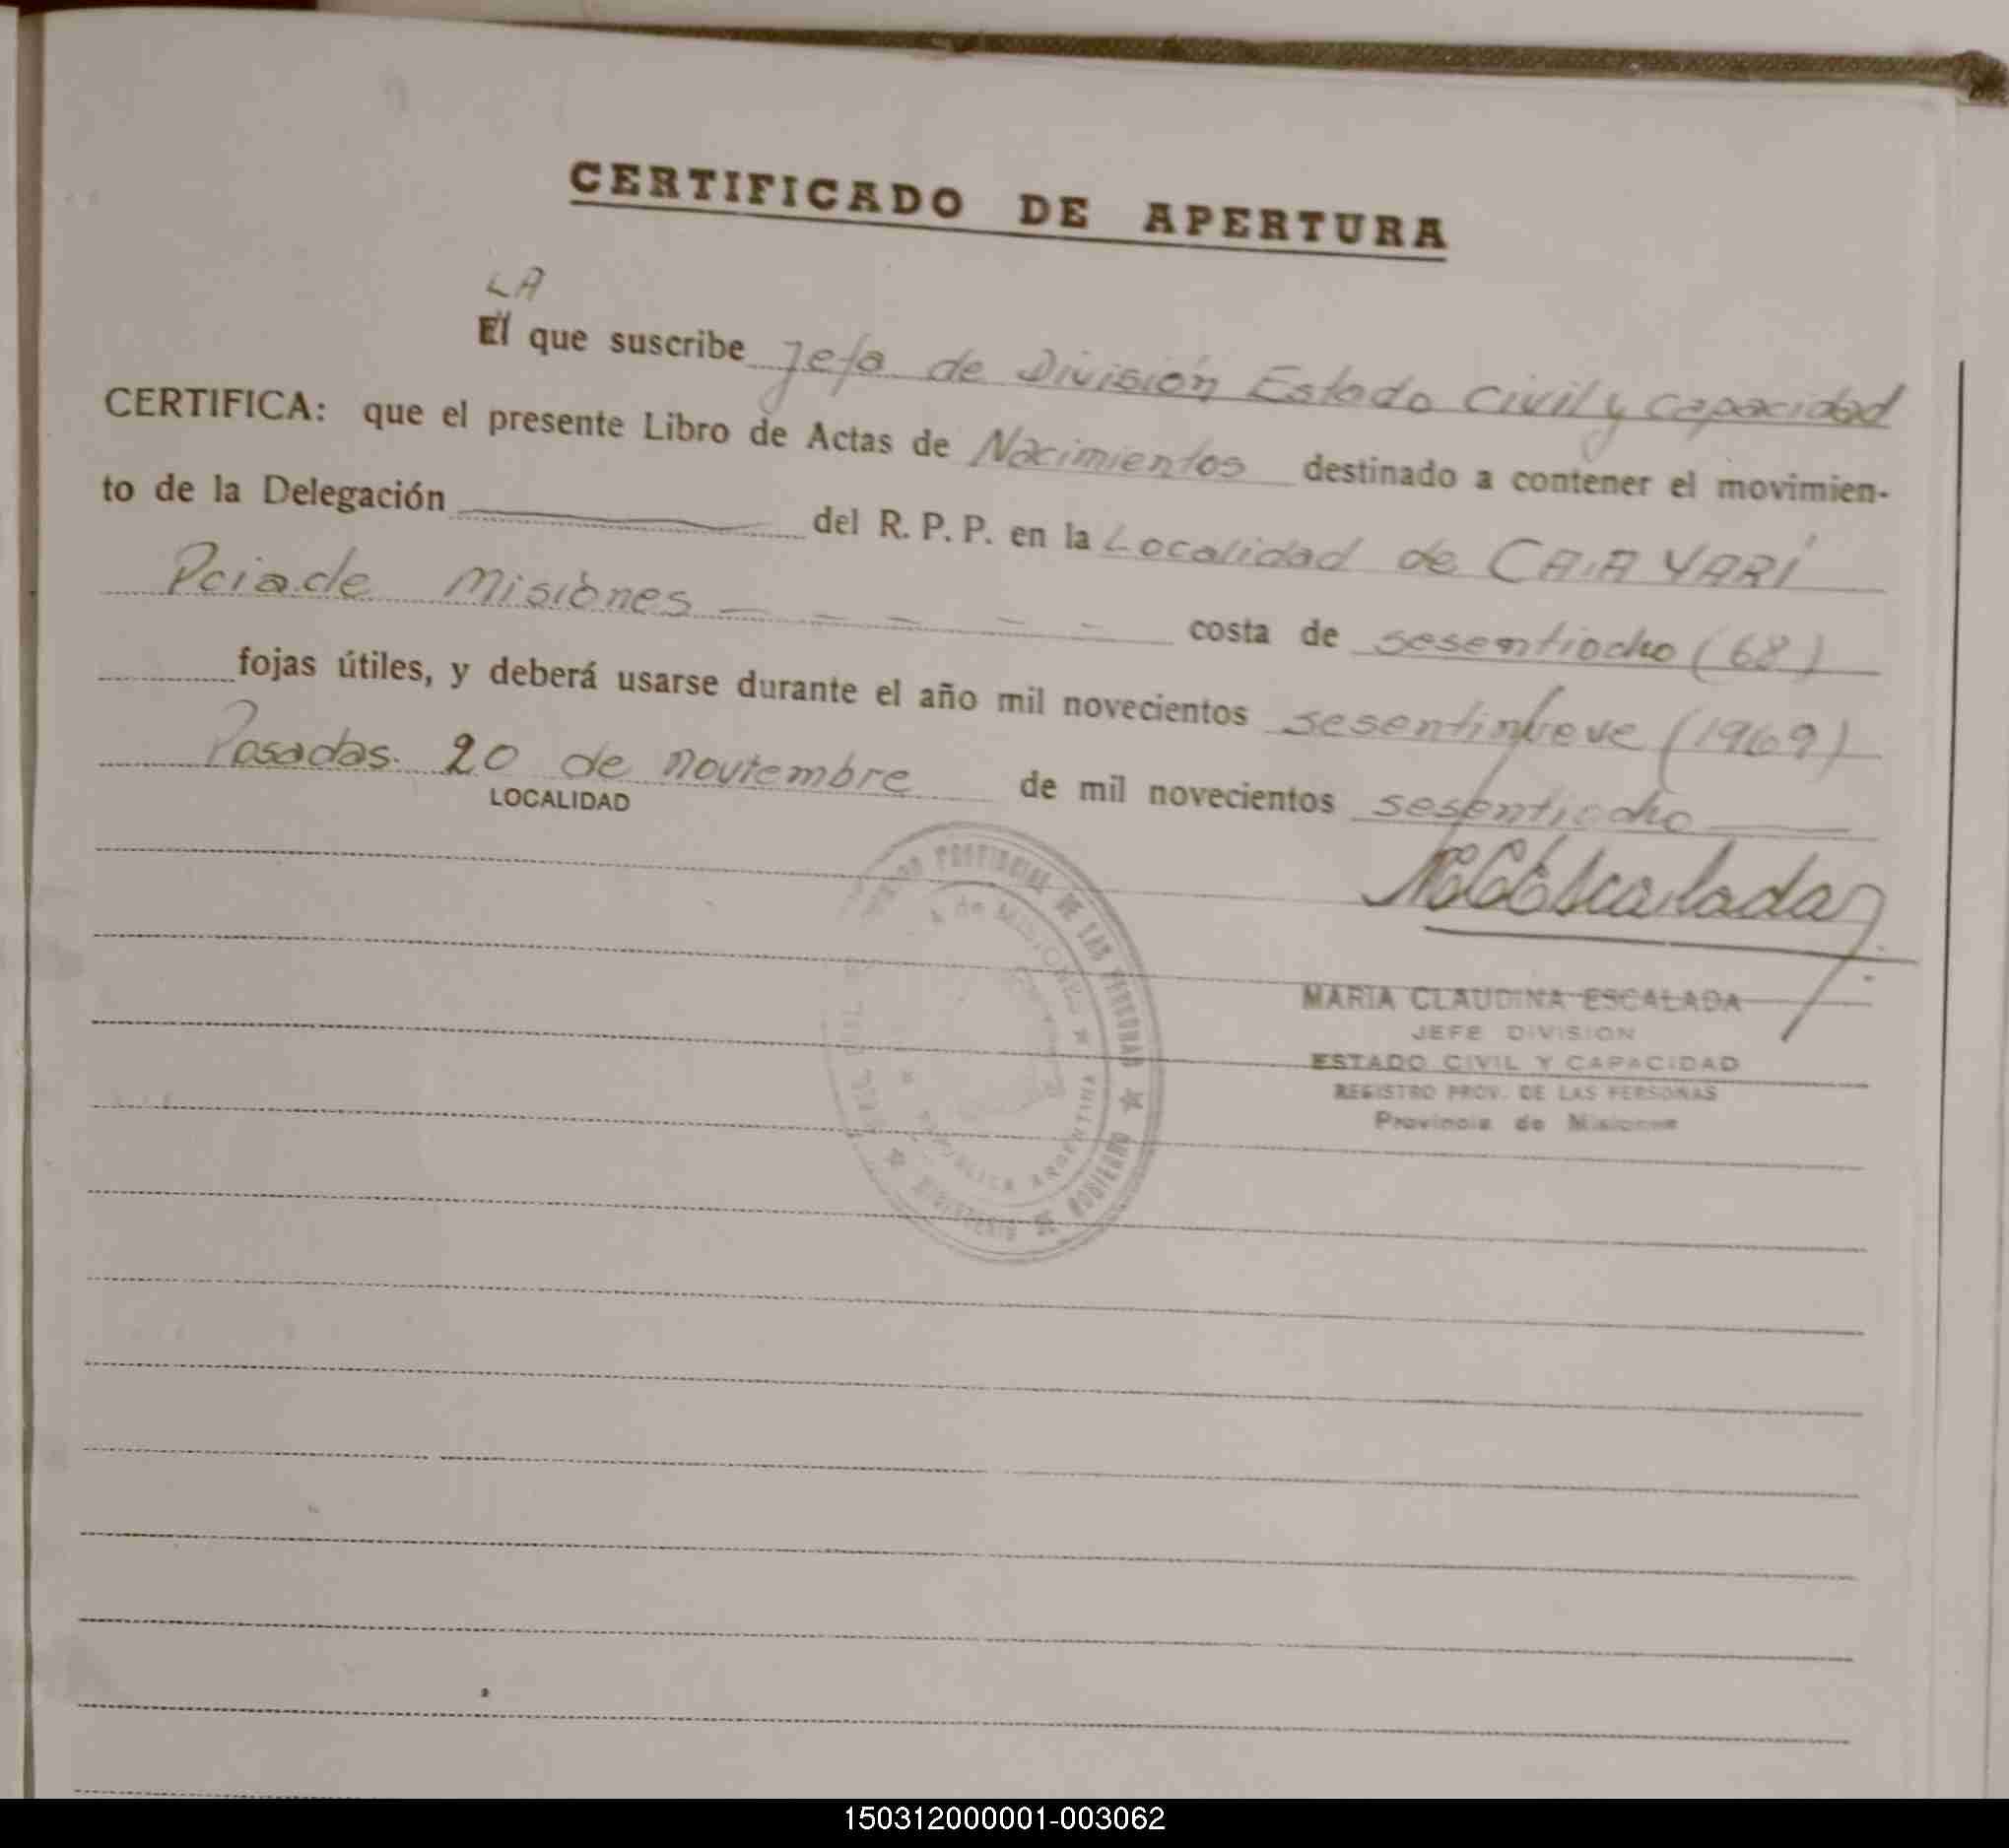 CERTIFICADO DE APERTURA
LA
El que suscribe Jefa de División Estado Civil y Capacidad
CERTIFICA: que el presente Libro de Actas de Nacimientos destinado a contener el movimien-
to de la Delegación del R. P. P. en la Localidad de CAIA YARÍ
Pcia de Misiones - - - - - costa de sesentiocho (68)
fojas útiles, y deberá usarse durante el año mil novecientos sesentinueve (1969)
Posadas. 20 de noviembre de mil novecientos sesentiocho
LOCALIDAD
MCEscalada
MARIA CLAUDINA ESCALADA
JEFE DIVISION
ESTADO CIVIL Y CAPACIDAD
REGISTRO PROV. DE LAS PERSONAS
Provincia de Misiones
PROVINCIAL DE LAS PERSONAS ★ MINISTERIO DE GOBIERNO ★
de MISIONES ★ REPUBLICA ARGENTINA ★
150312000001-003062